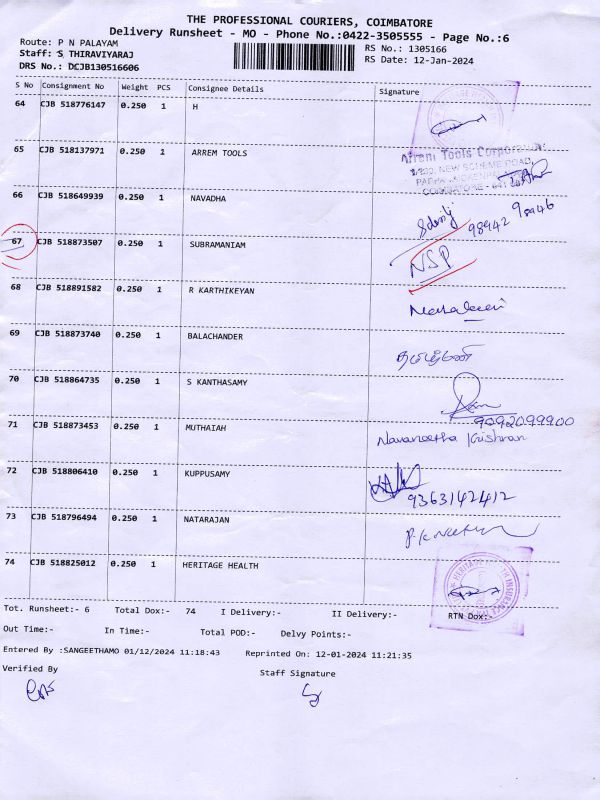 THE PROFESSIONAL COURIERS, COIMBATORE
Delivery Runsheet - MO - Phone No.:0422-3505555 - Page No.:6
Route: P N PALAYAM
Staff: S THIRAVIYARAJ
DRS No.: DCJB130516606
RS No.: 1305166
RS Date: 12-Jan-2024
S No Consignment No Weight PCS Consignee Details Signature
64 CJB 518776147 0.250 1 H
65 CJB 518137971 0.250 1 ARREM TOOLS
Arrem Tools Corporation
NEW SCHEME ROAD,
COIMBATORE
66 CJB 518649939 0.250 1 NAVADHA
98942
67 CJB 518873507 0.250 1 SUBRAMANIAM NSP
68 CJB 518891582 0.250 1 R KARTHIKEYAN
69 CJB 518873740 0.250 1 BALACHANDER
70 CJB 518864735 0.250 1 S KANTHASAMY
9092099900
71 CJB 518873453 0.250 1 MUTHAIAH Navaneetha Krishnan
72 CJB 518806410 0.250 1 KUPPUSAMY
9363142412
73 CJB 518796494 0.250 1 NATARAJAN
74 CJB 518825012 0.250 1 HERITAGE HEALTH
Tot. Runsheet:- 6 Total Dox:- 74 I Delivery:- II Delivery:- RTN Dox:-
Out Time:- In Time:- Total POD:- Delvy Points:-
Entered By :SANGEETHAMO 01/12/2024 11:18:43 Reprinted On: 12-01-2024 11:21:35
Verified By Staff Signature